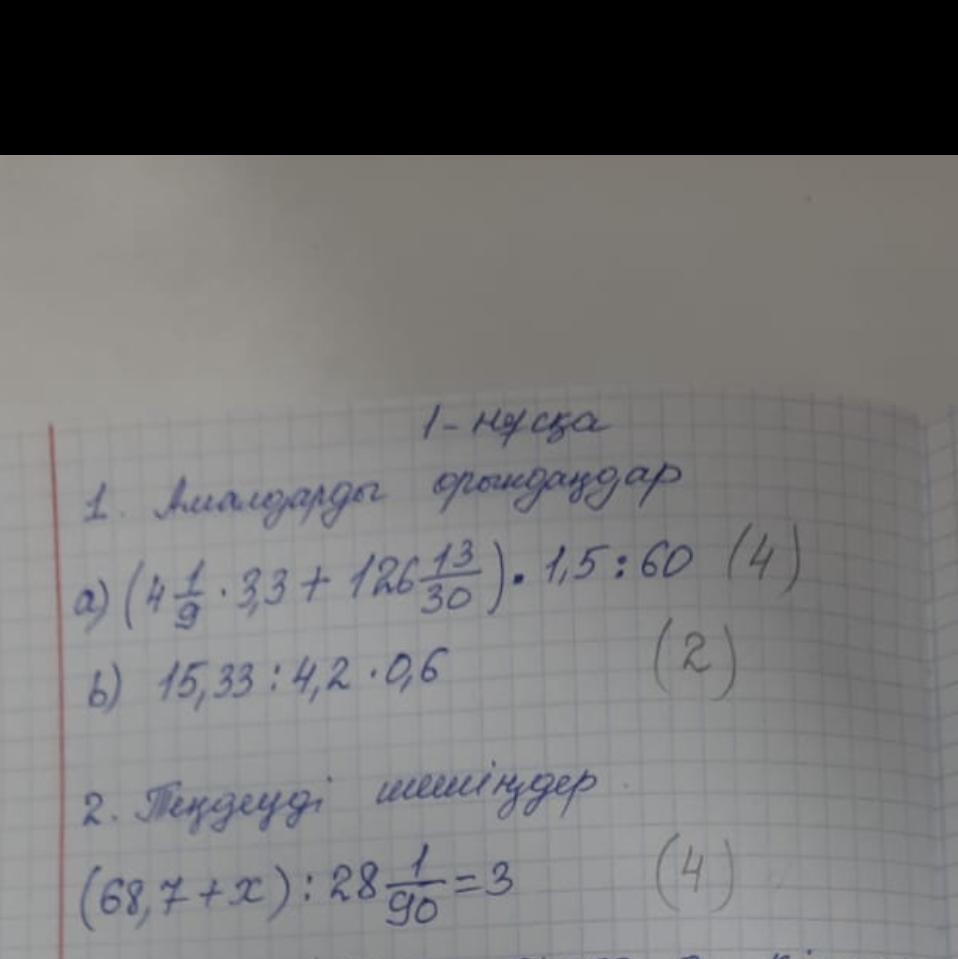 1-нұсқа
1. Амалдарды орындаңдар
a) (4 1/9 · 3,3 + 126 13/30) · 1,5 : 60 (4)
b) 15,33 : 4,2 · 0,6 (2)
2. Теңдеуді шешіңдер
(68,7 + x) : 28 1/90 = 3 (4)